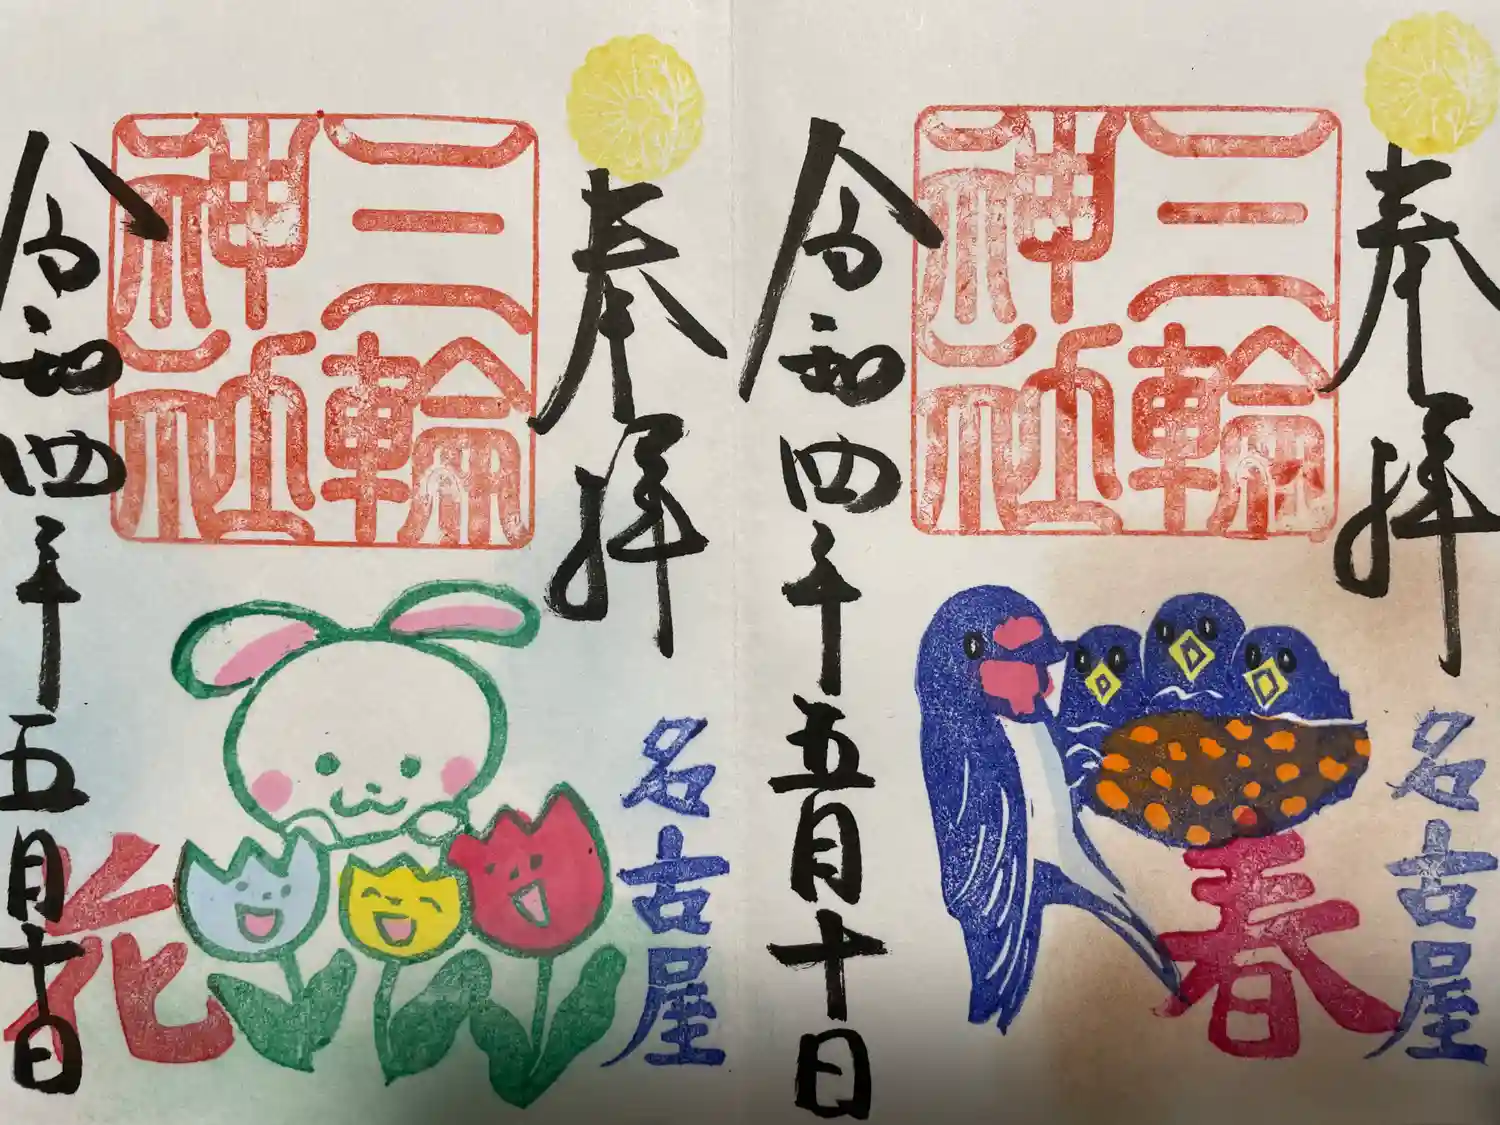 奉拝
三輪
神社
名古屋
春
令和四年五月十日
奉拝
三輪
神社
名古屋
花
令和四年五月十日